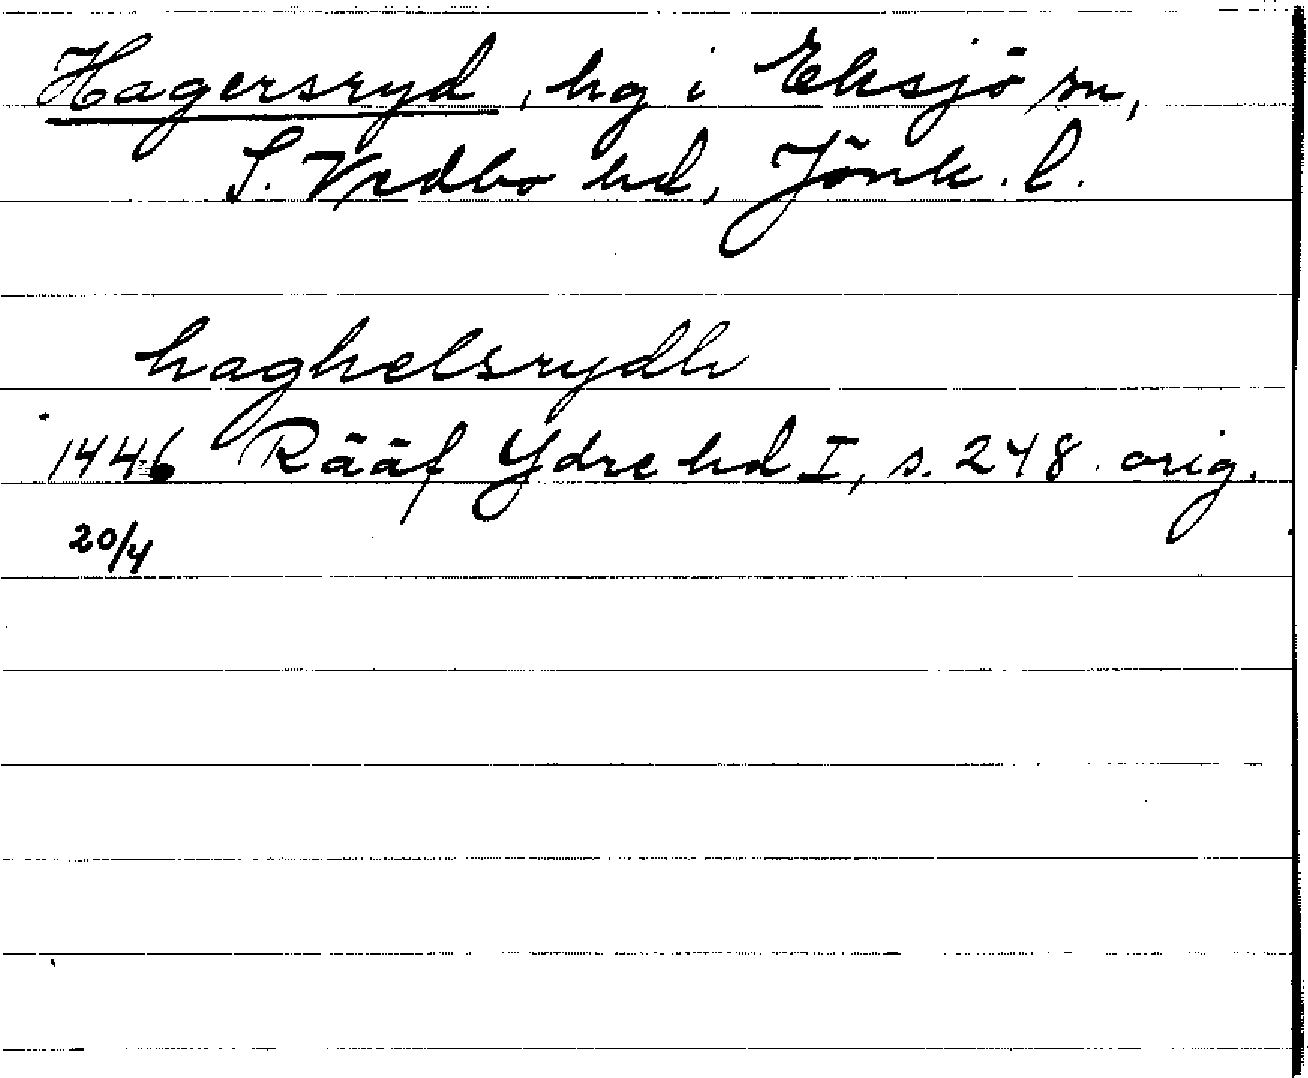 Hagersryd, hg i Eksjö sn,
S. Vedbo hd, Jönk. l.
haghelsrydh
1446 Rääf Ydre hd I, s. 248. orig.
20/4